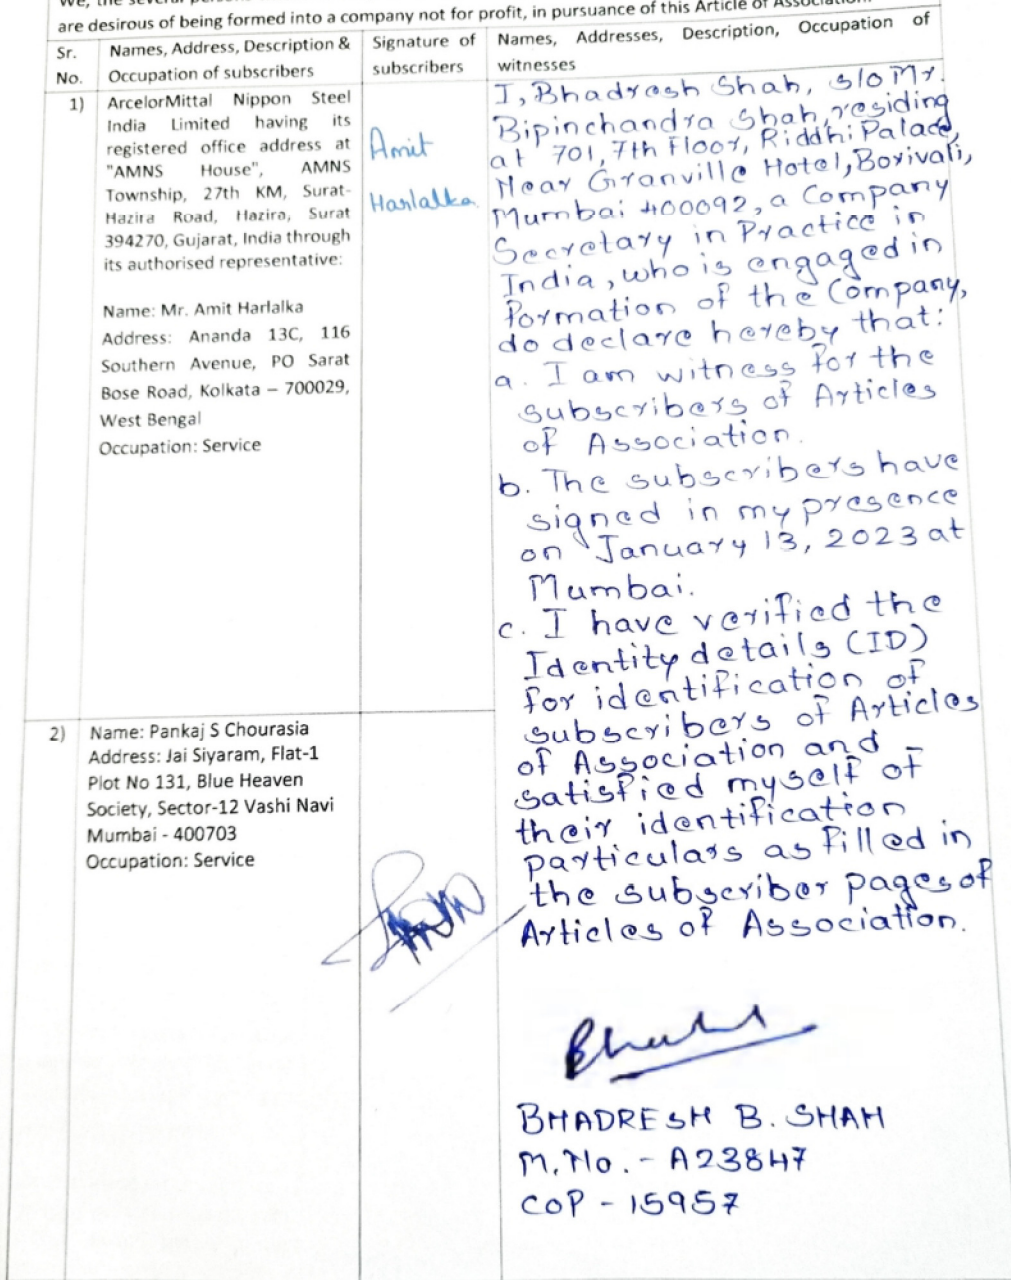 We, the several
are desirous of being formed into a company not for profit, in pursuance of this Article of Association:
Sr.
No.
Names, Address, Description &
Occupation of subscribers
Signature of
subscribers
Names, Addresses, Description, Occupation of
witnesses
1)
ArcelorMittal Nippon Steel
India Limited having its
registered office address at
"AMNS House", AMNS
Township, 27th KM, Surat-
Hazira Road, Hazira, Surat
394270, Gujarat, India through
its authorised representative:
Name: Mr. Amit Harlalka
Address: Ananda 13C, 116
Southern Avenue, PO Sarat
Bose Road, Kolkata – 700029,
West Bengal
Occupation: Service
Amit
Harlalka
I, Bhadresh Shah, s/o Mr.
Bipinchandra Shah, residing
at 701, 7th Floor, Riddhi Palace,
Near Granville Hotel, Borivali,
Mumbai 400092, a Company
Secretary in Practice in
India, who is engaged in
Formation of the Company,
do declare hereby that:
a. I am witness for the
subscribers of Articles
of Association.
b. The subscribers have
signed in my presence
on January 13, 2023 at
Mumbai.
c. I have verified the
Identity details (ID)
for identification of
subscribers of Articles
of Association and
satisfied myself of
their identification
particulars as filled in
the subscriber pages of
Articles of Association.
2)
Name: Pankaj S Chourasia
Address: Jai Siyaram, Flat-1
Plot No 131, Blue Heaven
Society, Sector-12 Vashi Navi
Mumbai - 400703
Occupation: Service
BHADRESH B. SHAH
M. No. - A23847
COP - 15957